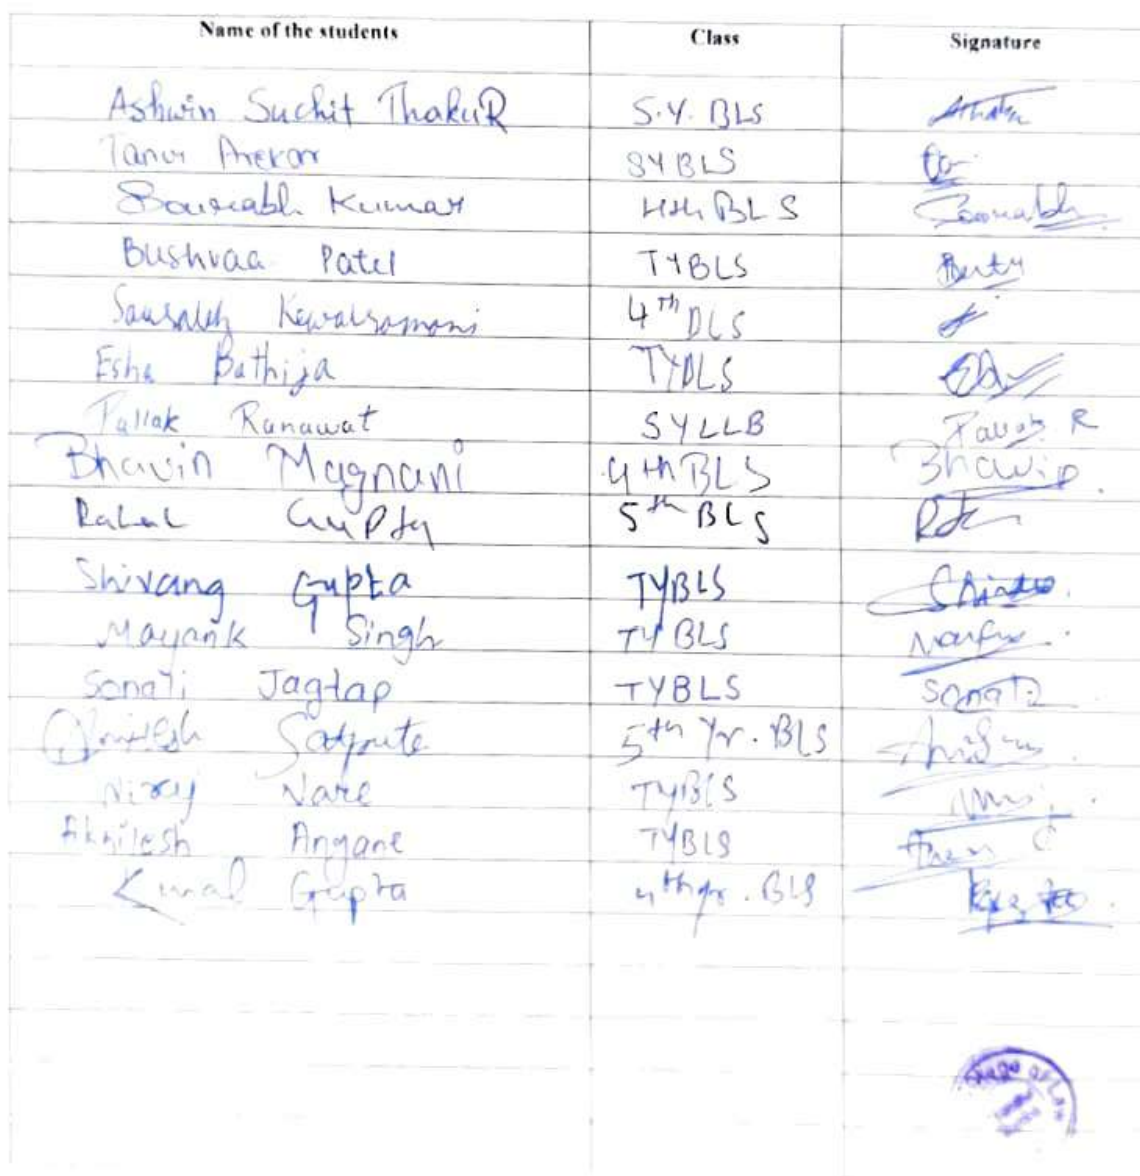 Name of the students Class Signature
Ashwin Suchit ThakuR S.Y. BLS
Tanvi SYBLS
Sourabh Kumar 4th BLS Sourabh
Bushraa Patel TYBLS
Saurabh Kewalramani 4th DLS
Esha Bathija TYDLS
Pallak Ranawat SYLLB Pallak R
Bhavin Magnani 4th BLS Bhavin
Rahul Gupta 5th BLS
Shivang Gupta TYBLS
Mayank Singh TYBLS
Sonali Jagtap TYBLS Sonali
Satpute 5th Yr. BLS
Niraj Nare TYBLS
Akhilesh Angane TYBLS
Kunal Gupta 4th yr. BLS
of Law